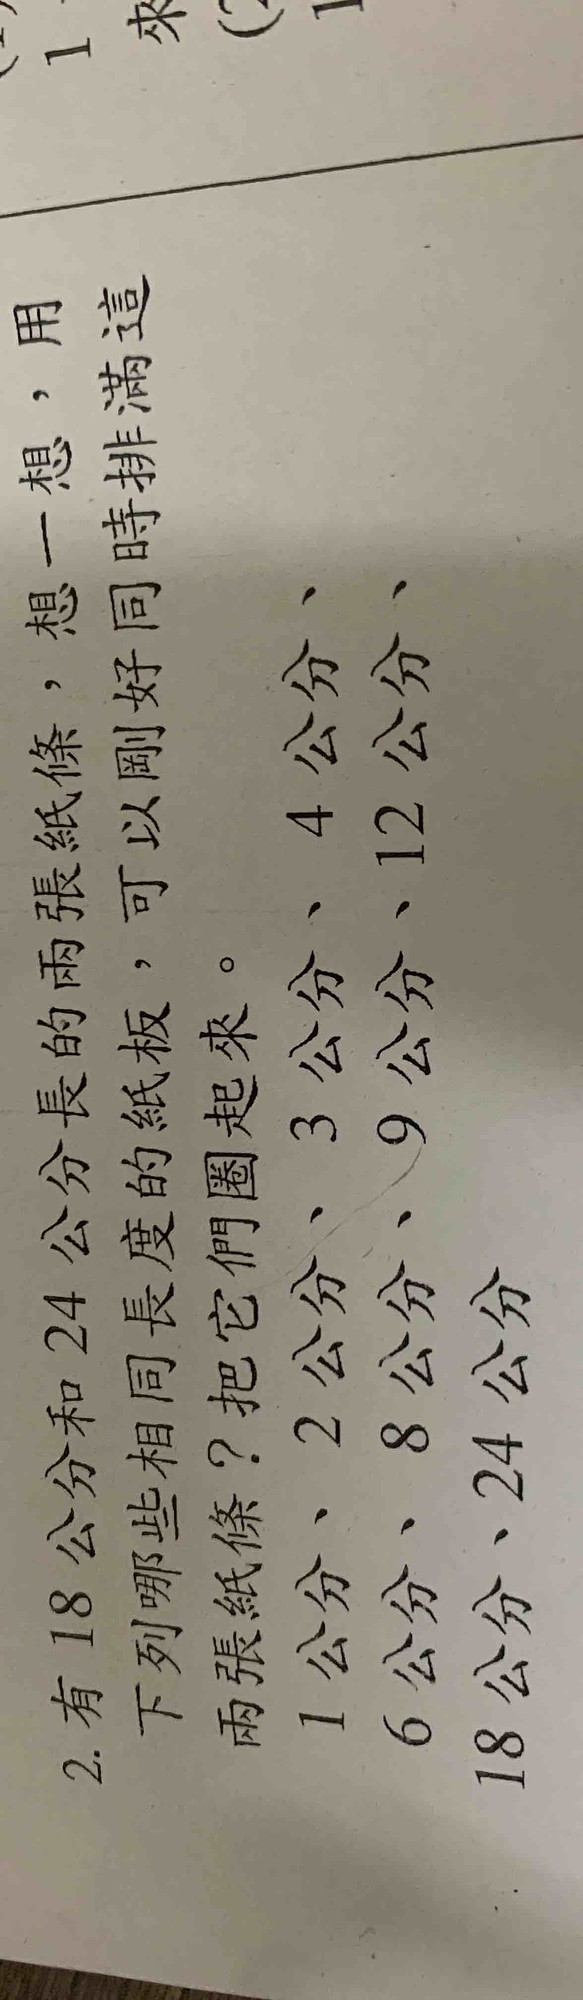 1
來
(2
1
2. 有 18 公分和 24 公分長的兩張紙條，想一想，用
下列哪些相同長度的紙板，可以剛好同時排滿這
兩張紙條？把它們圈起來。
1 公分、 2 公分、 3 公分、 4 公分、
6 公分、 8 公分、 9 公分、12 公分、
18 公分、24 公分